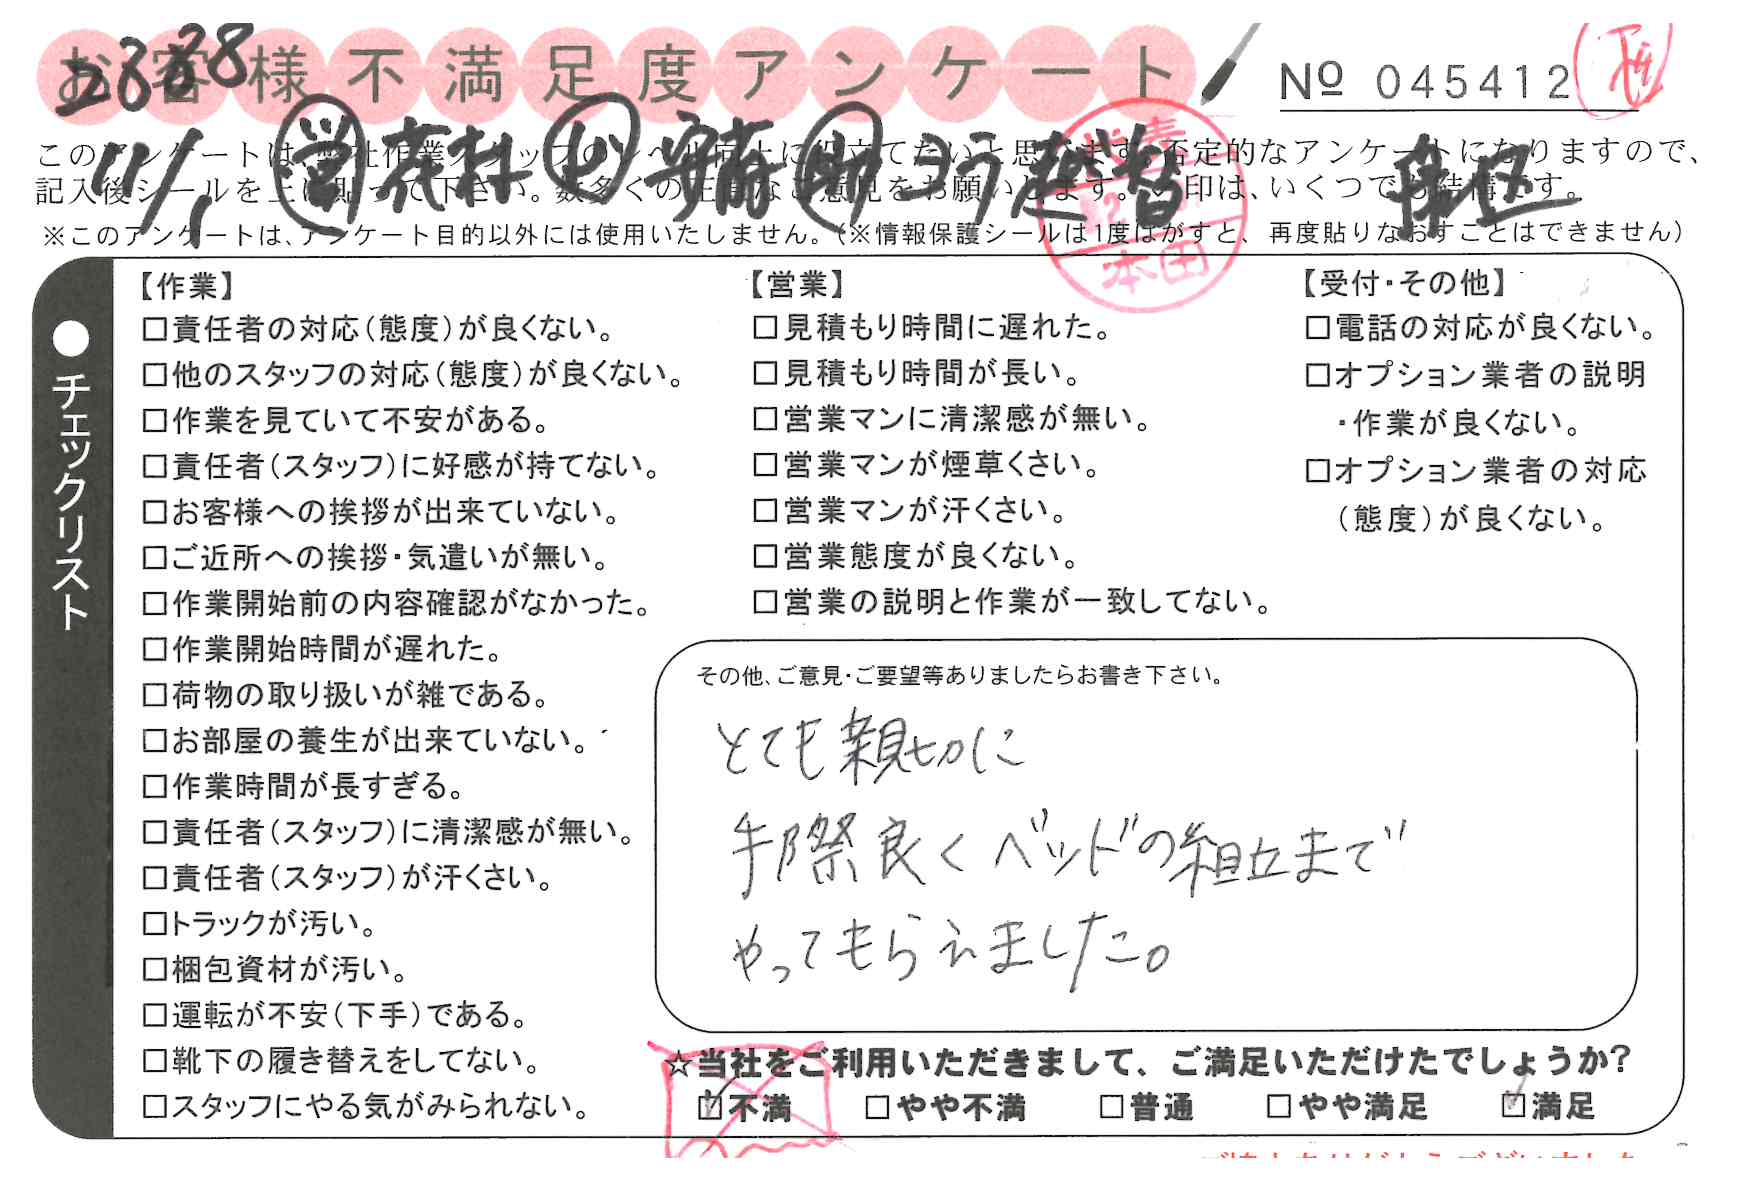 お客様不満足度アンケート
№ 045412
このアンケートは、弊社作業スタッフのレベル向上に役立てたいと思います。否定的なアンケートになりますので、
記入後シールを上に貼って下さい。数多くの正直なご意見をお願いします。☑印は、いくつでも結構です。
※このアンケートは、アンケート目的以外には使用いたしません。(※情報保護シールは1度はがすと、再度貼りなおすことはできません)
11/1
本田
●チェックリスト
【作業】
□責任者の対応(態度)が良くない。
□他のスタッフの対応(態度)が良くない。
□作業を見ていて不安がある。
□責任者(スタッフ)に好感が持てない。
□お客様への挨拶が出来ていない。
□ご近所への挨拶・気遣いが無い。
□作業開始前の内容確認がなかった。
□作業開始時間が遅れた。
□荷物の取り扱いが雑である。
□お部屋の養生が出来ていない。
□作業時間が長すぎる。
□責任者(スタッフ)に清潔感が無い。
□責任者(スタッフ)が汗くさい。
□トラックが汚い。
□梱包資材が汚い。
□運転が不安(下手)である。
□靴下の履き替えをしてない。
□スタッフにやる気がみられない。
【営業】
□見積もり時間に遅れた。
□見積もり時間が長い。
□営業マンに清潔感が無い。
□営業マンが煙草くさい。
□営業マンが汗くさい。
□営業態度が良くない。
□営業の説明と作業が一致してない。
【受付・その他】
□電話の対応が良くない。
□オプション業者の説明
・作業が良くない。
□オプション業者の対応
(態度)が良くない。
その他、ご意見・ご要望等ありましたらお書き下さい。
とても親切に
手際良くベッドの組立まで
やってもらえました。
☆当社をご利用いただきまして、ご満足いただけたでしょうか?
☑不満 □やや不満 □普通 □やや満足 ☑満足